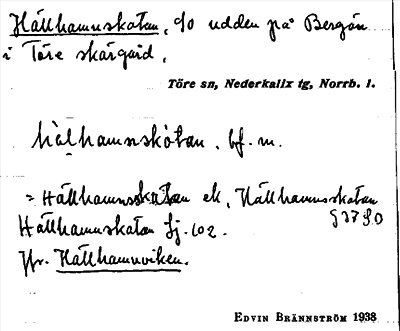 Hällhamnskatan, S/O udden på Bergön
i Töre skärgård.
Töre sn, Nederkalix tg, Norrb. l.
hälhamnskòtan, bf. m.
= Hällhamnsskatan ek, Hällhamnsskatan
§ 37 SO
Hällhamnskatan Sj. 102.
Jfr. Hällhamnviken.
EDVIN BRÄNNSTRÖM 1938